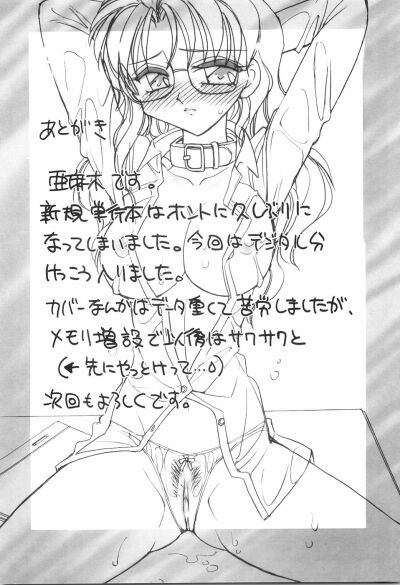 あとがき
亜麻木です。
新規単行本はホントに久しぶりに
なってしまいました。今回はデジタル分
けっこう入りました。
カバーなんかはデータ重くて苦労しましたが、
メモリ増設で以後はサクサクと
(←先にやっとけって…。)
次回もよろしくです。